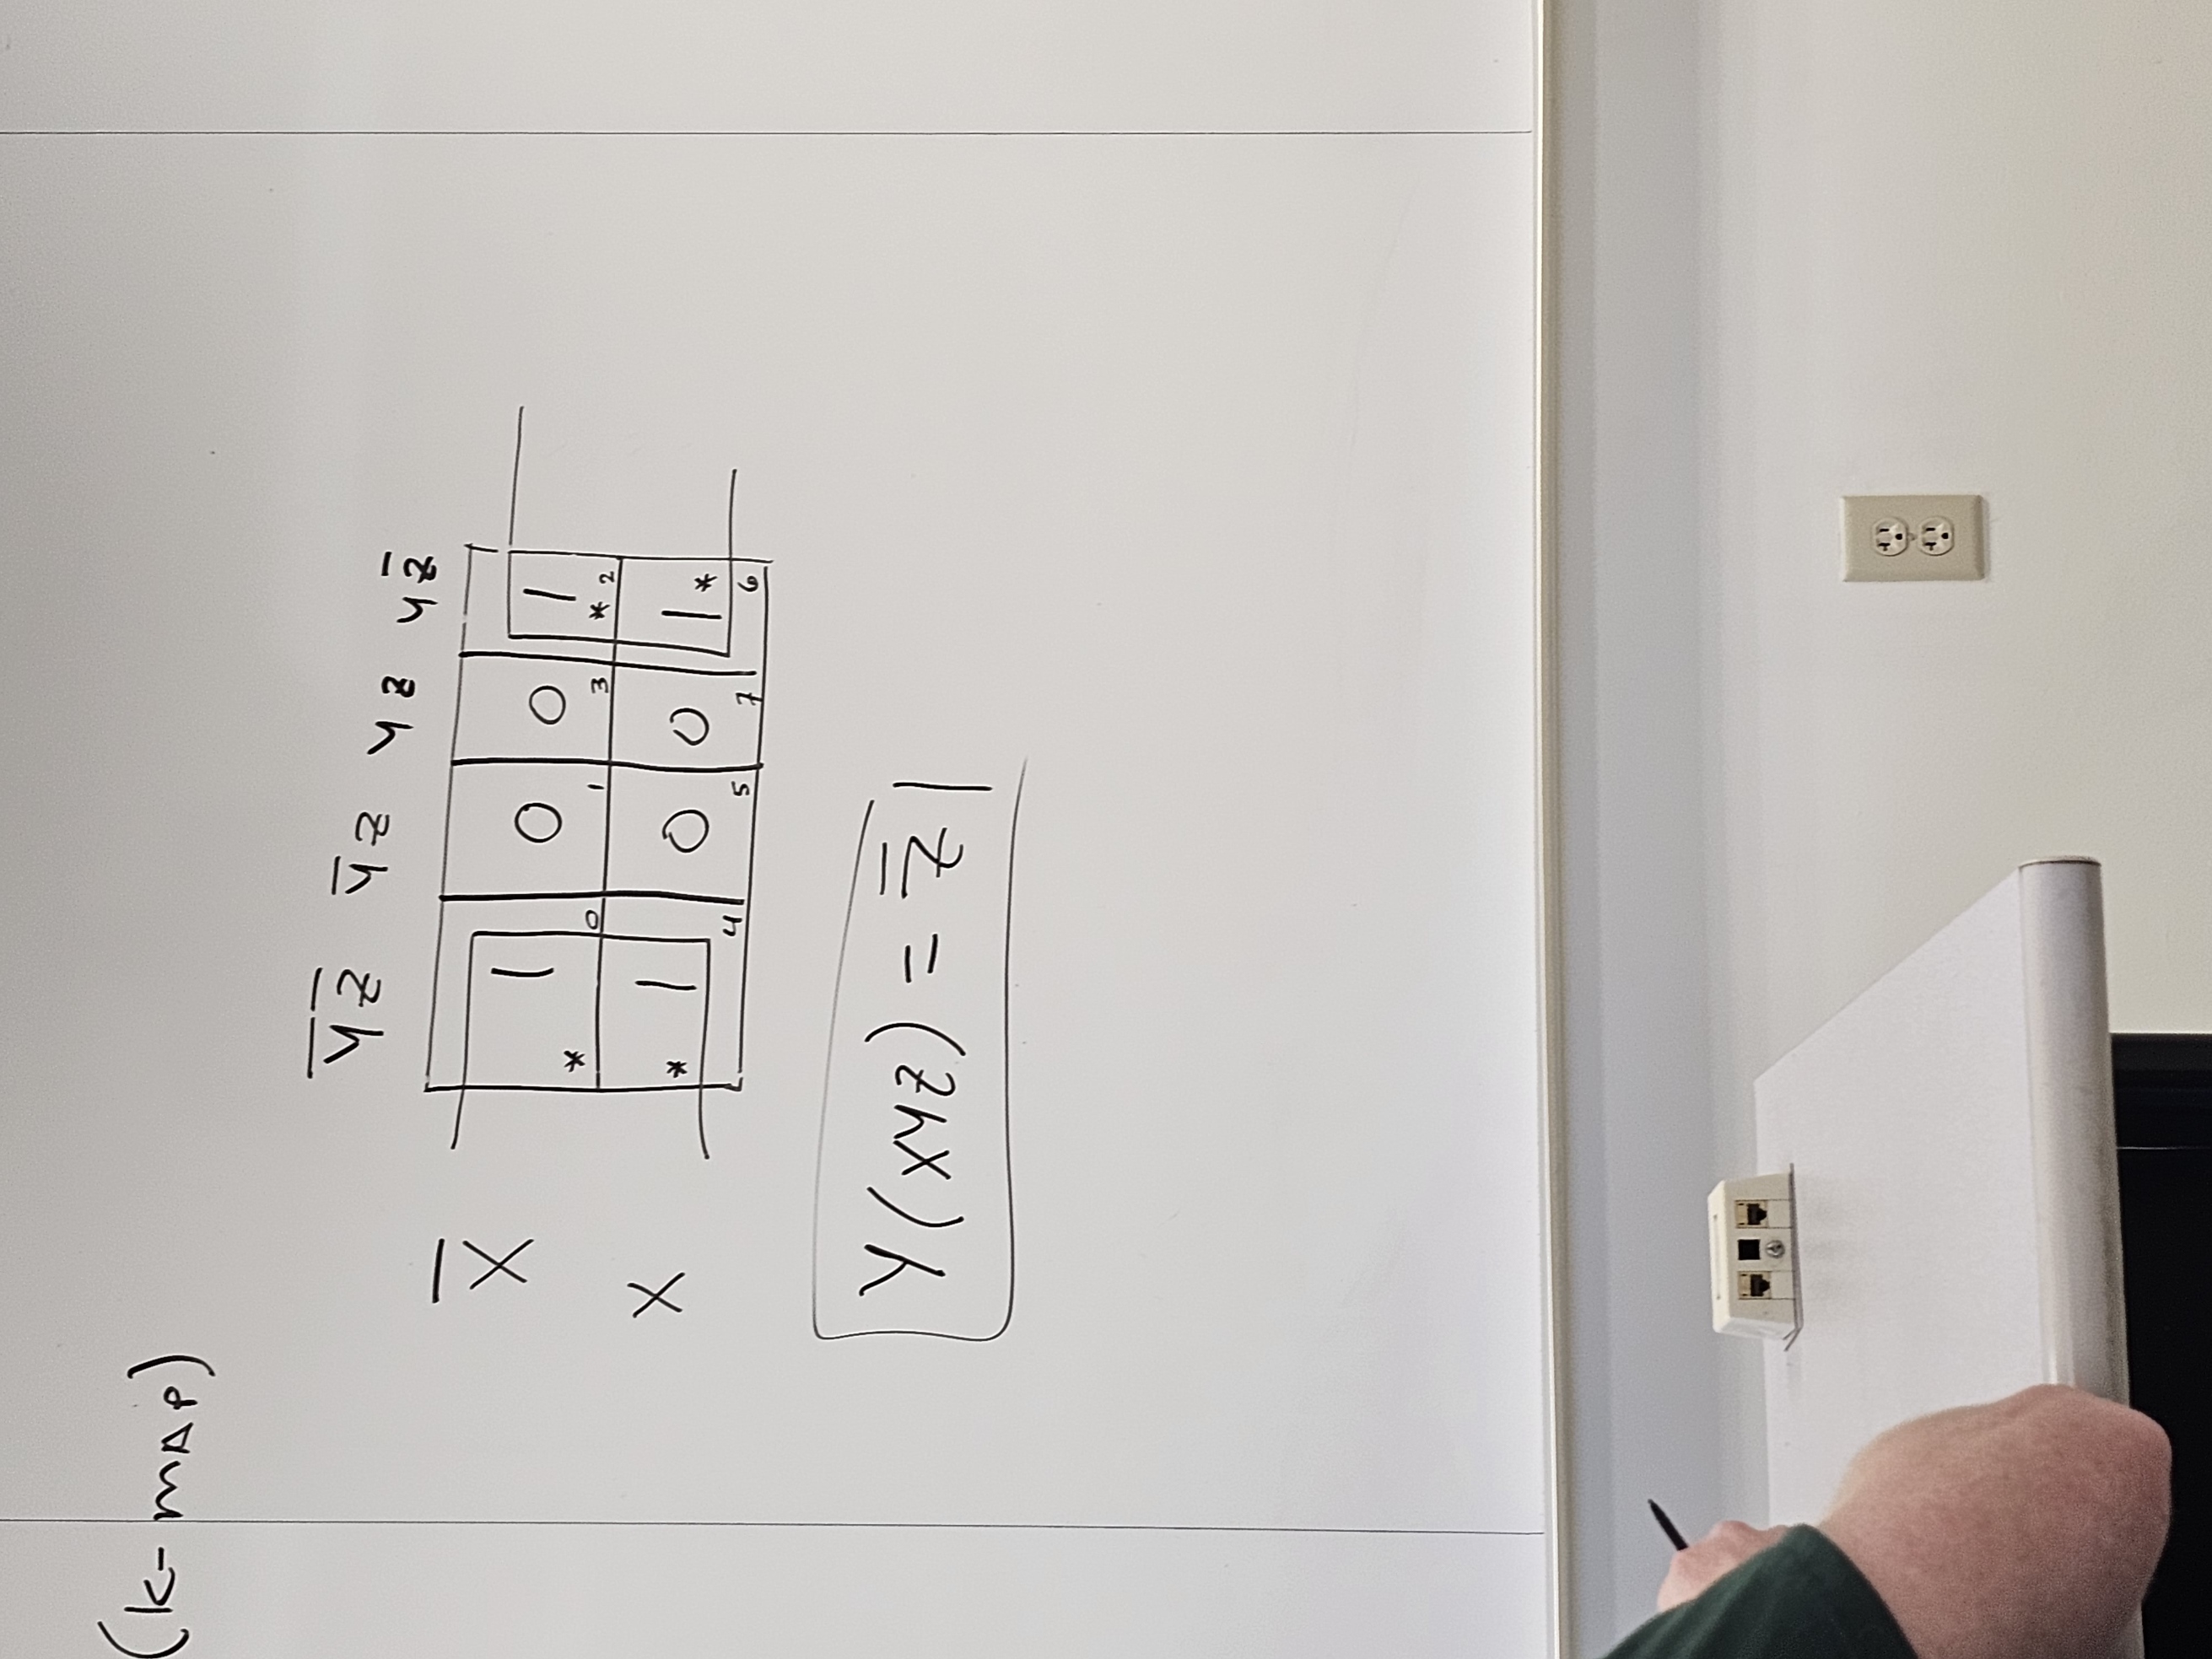 (K-MAP)
Y̅Z̅ Y̅Z YZ YZ̅
X̅ 1 0 0 1
* 0 1 3 * 2
X * 1 0 0 1 *
4 5 7 6
Y(XYZ) = Z̅